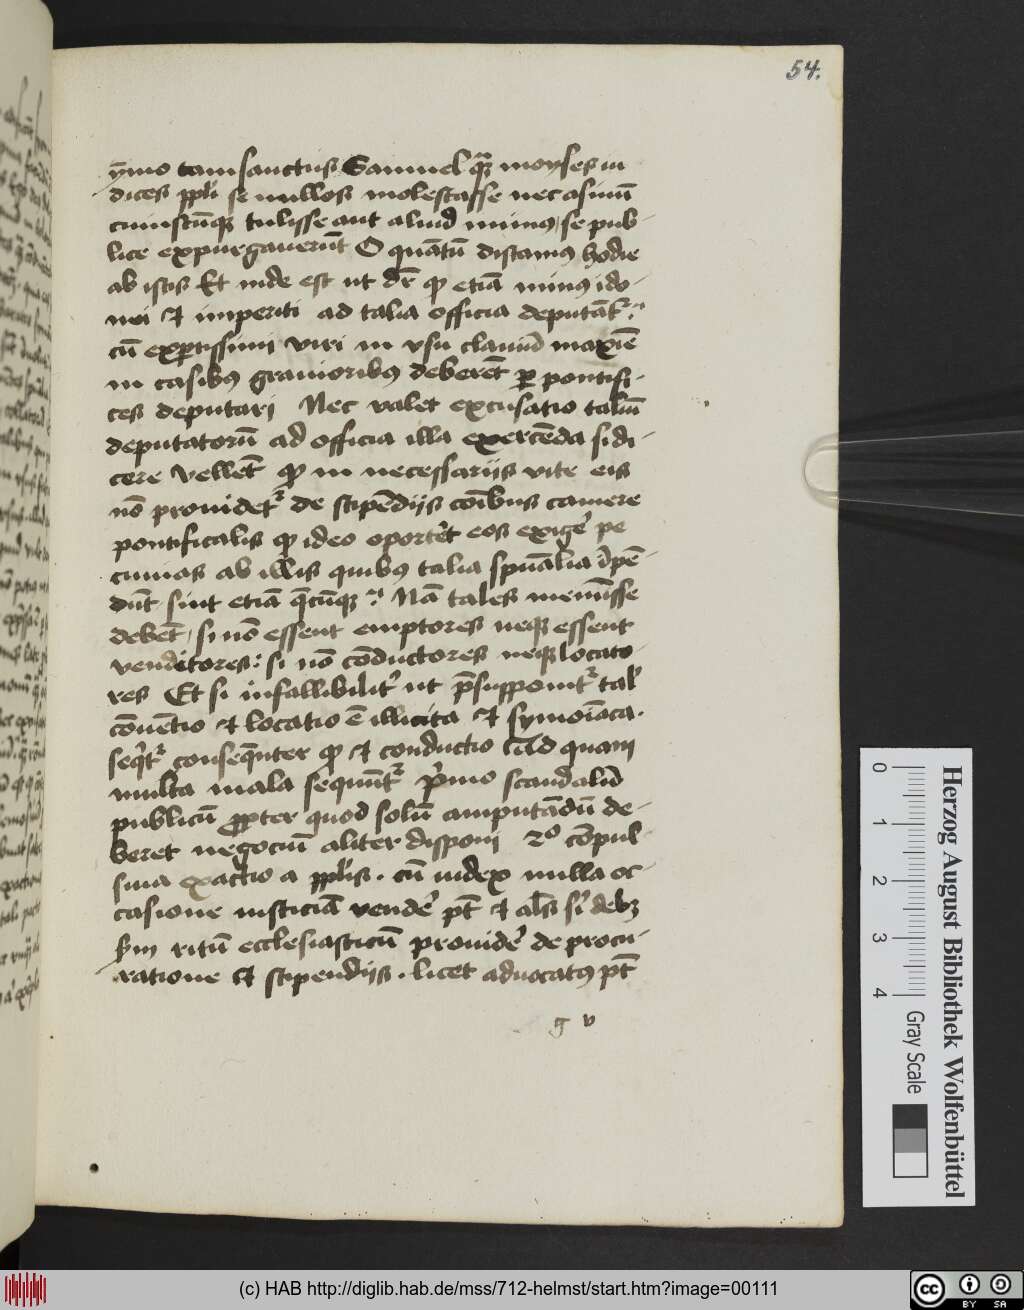 54.
ȳmo tam sanctus Samuel qȝ moyses iu
dices ppli se nullos molestasse nec asinū
cuiuscūqȝ tulisse aut aliud munus, se pub-
lice expurgauerūt O quātū distamus hodie
ab istis Et inde est ut dr̄ qp etiā minus ido-
nei et imperiti ad talia officia deputāt᷑
cū exꝑtissimi viri in vsu clauiū maxīe
in casibus grauioribus deberēt ꝑ pontifi-
ces deputari Nec valet excusatio taliū
deputatorū ad officia illa exercēda si di-
cere vellēt qp in necessariis vite eis
nō prouidet᷑ de stipēdijs cōibus camere
pontificalis qp ideo oportet eos exige᷑ pe
cunias ab illis quibus talia spūalia īpē-
dūt sint etiā q̄cūqȝ Nā tales meminisse
debēt, si nō essent emptores neqȝ essent
venditores: si nō cōductores neqȝ locato-
res Et si infallibilit᷑ ut p̄supponit᷑ tal᷑
cōuētio et locatio ē illicita et symoīaca.
seq̄t᷑ conseq̄nter qp et conductio Ad quam
multa mala sequūt᷑ p᷑mo scandalū
publicū ꝓpter quod solū amputādū de-
beret negociū aliter disponi 2º cōpul
siua exactio a pplis. cū iudex nulla oc-
casione iusticiā vende᷑ pt̄ et als si᷑ debȝ
ẜm ritū ecclesiasticū prouide᷑ de procu-
ratione et stipendijs. licet aduocatus pt̄
g v
Herzog August Bibliothek Wolfenbüttel
0 1 2 3 4 Gray Scale
(c) HAB http://diglib.hab.de/mss/712-helmst/start.htm?image=00111
cc BY SA